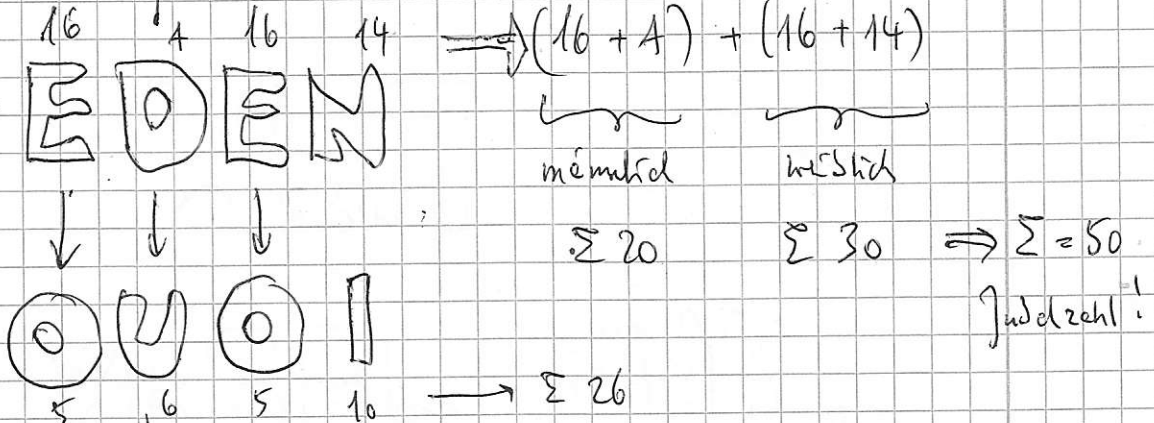 16 4 16 14 ⟹ (16 + 4) + (16 + 14)
EDEN
männlich weiblich
Σ 20 Σ 30 ⟹ Σ = 50
Jubelzahl!
O U O I
5 6 5 10 → Σ 26